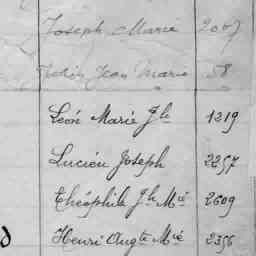 Joseph Marie 2007
Jean Marie 58
Léon Marie Jh 1219
Lucien Joseph 2257
Théophile Jh Mie 2609
Henri Augte Mie 2356
d